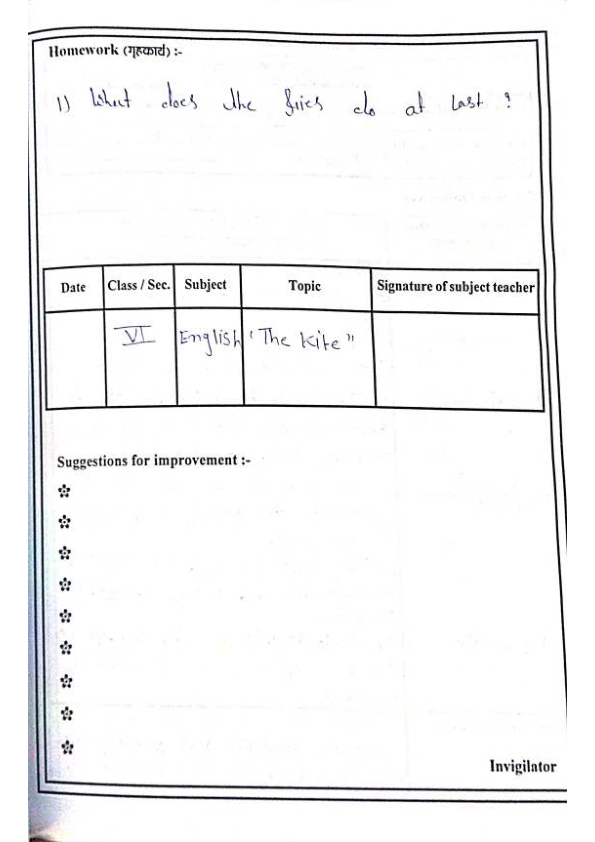 Homework (गृहकार्य) :-
1) What does the fries do at last ?
Date Class / Sec. Subject Topic Signature of subject teacher
VI English "The Kite"
Suggestions for improvement :-
Invigilator